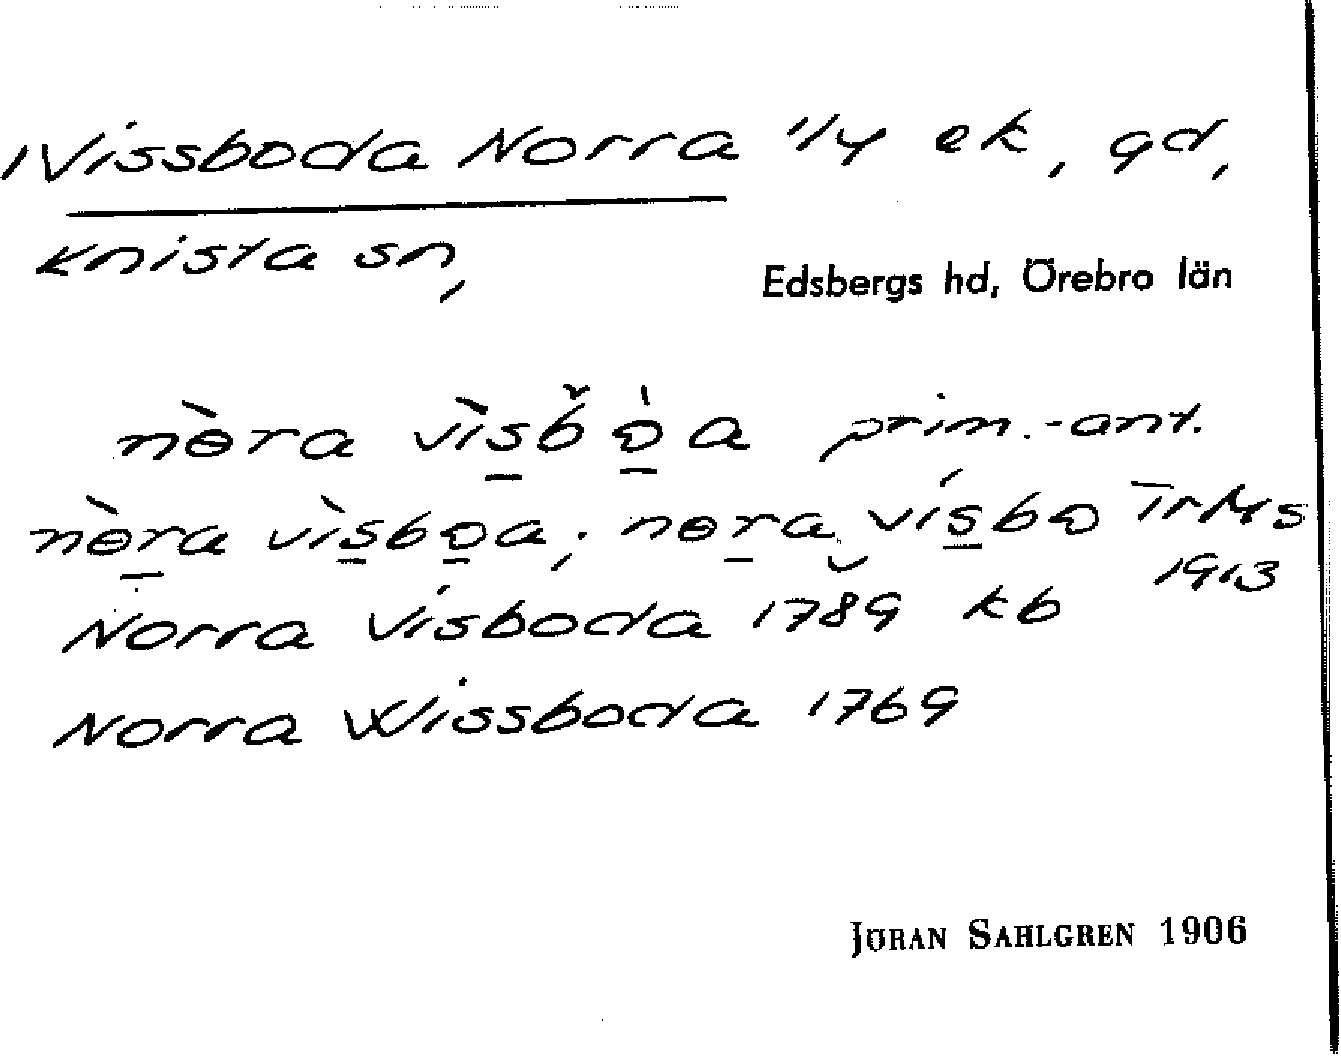 Wissboda Norra 1/4 ek, gd,
Knista sn,
Edsbergs hd, Örebro län
nɵ̀ra vìs̠b̌o̠̍a prim.-ant.
nɵ̀r̠a vìs̠bo̠a; nɵr̠a vís̠bo TrMs
1913
Norra Visboda 1789 kb
Norra Wissboda 1769
JÖRAN SAHLGREN 1906